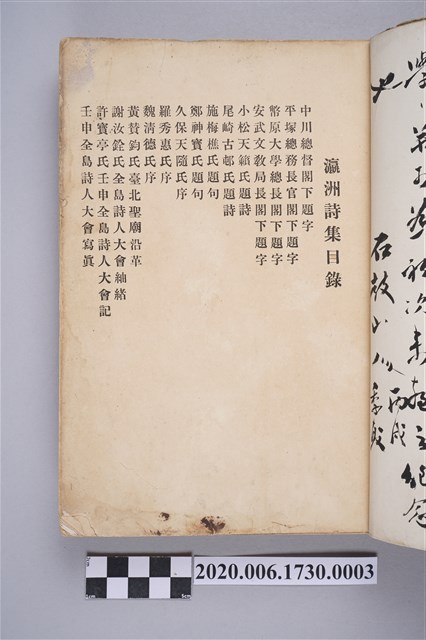 瀛洲詩集目錄
中川總督閣下題字
平塚總務長官閣下題字
幣原大學總長閣下題字
安武文教局長閣下題字
小松天籟氏題詩
尾崎古邨氏題詩
施梅樵氏題句
鄭神寶氏題句
久保天隨氏序
羅秀惠氏序
魏清德氏序
黃贊鈞氏臺北聖廟沿革
謝汝銓氏全島詩人大會紬緒
許寶亭氏壬申全島詩人大會記
壬申全島詩人大會寫眞
2020.006.1730.0003